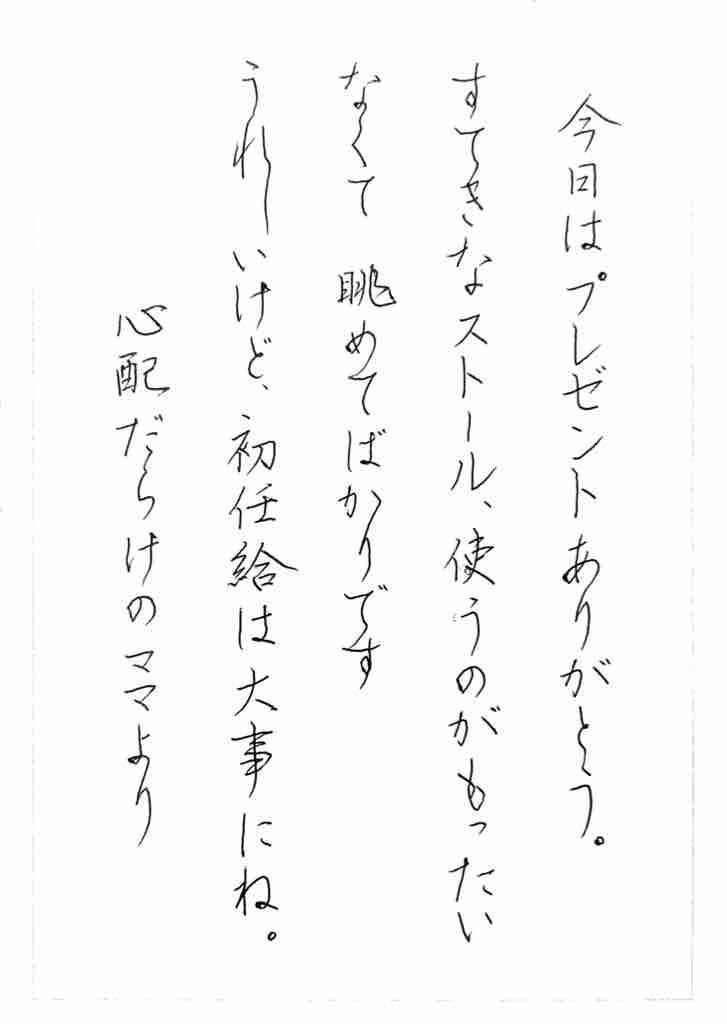 今日はプレゼントありがとう。
すてきなストール、使うのがもったい
なくて 眺めてばかりです
うれしいけど、初任給は大事にね。
心配だらけのママより